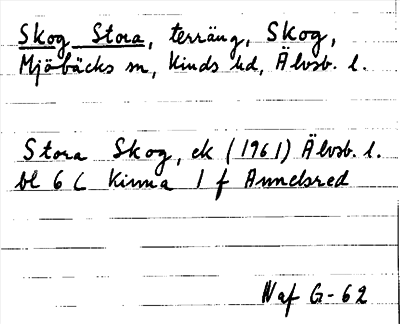 Skog Stora, terräng, Skog,
Mjöbäcks sn, Kinds hd, Älvsb. l.
Stora Skog, ek (1961) Älvsb. l.
bl 6 C Kinna 1 f Annelsred
Naf G-62